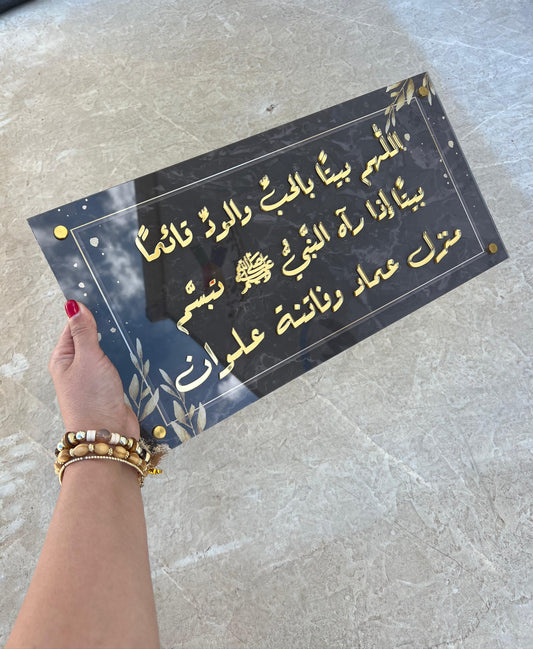 اللَّهم بيتًا بالحبِّ والودِّ قائمًا
بيتًا إذا رآه النبَّيُّ ﷺ تبسَّم
منزل عماد وفاتنة علوان